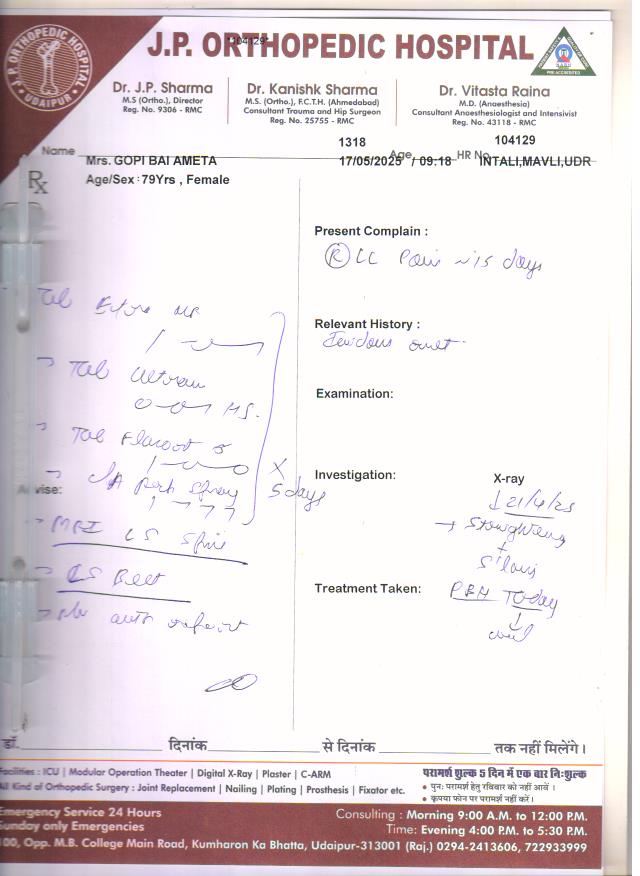 J.P. ORTHOPEDIC HOSPITAL
UDAIPUR
*104129*
J.P. ORTHOPEDIC HOSPITAL
Dr. J.P. Sharma
M.S (Ortho.), Director
Reg. No. 9306 - RMC
Dr. Kanishk Sharma
M.S. (Ortho.), F.C.T.H. (Ahmedabad)
Consultant Trauma and Hip Surgeon
Reg. No. 25755 - RMC
Dr. Vitasta Raina
M.D. (Anaesthesia)
Consultant Anaesthesiologist and Intensivist
Reg. No. 43118 - RMC
1318 104129
Name Mrs. GOPI BAI AMETA 17/05/2025 Age / 09:18 HR No INTALI,MAVLI,UDR
Rx Age/Sex : 79Yrs , Female
Present Complain :
R LL Pain 15 days
Relevant History :
Examination:
Investigation: X-ray
21/4/25
Treatment Taken: Today
Tab
Tab
HS.
Tab
Spray
x 5 days
MRI LS Spine
LS Belt
डॉ. दिनांक से दिनांक तक नहीं मिलेंगे।
Facilities : ICU | Modular Operation Theater | Digital X-Ray | Plaster | C-ARM
All Kind of Orthopedic Surgery : Joint Replacement | Nailing | Plating | Prosthesis | Fixator etc.
परामर्श शुल्क 5 दिन में एक बार निःशुल्क
• पुनः परामर्श हेतु रविवार को नहीं आवें ।
• कृपया फोन पर परामर्श नहीं करें।
Emergency Service 24 Hours
Sunday only Emergencies
Consulting : Morning 9:00 A.M. to 12:00 P.M.
Time: Evening 4:00 P.M. to 5:30 P.M.
100, Opp. M.B. College Main Road, Kumharon Ka Bhatta, Udaipur-313001 (Raj.) 0294-2413606, 722933999